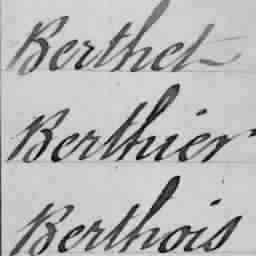 Berthet
Berthier
Berthois